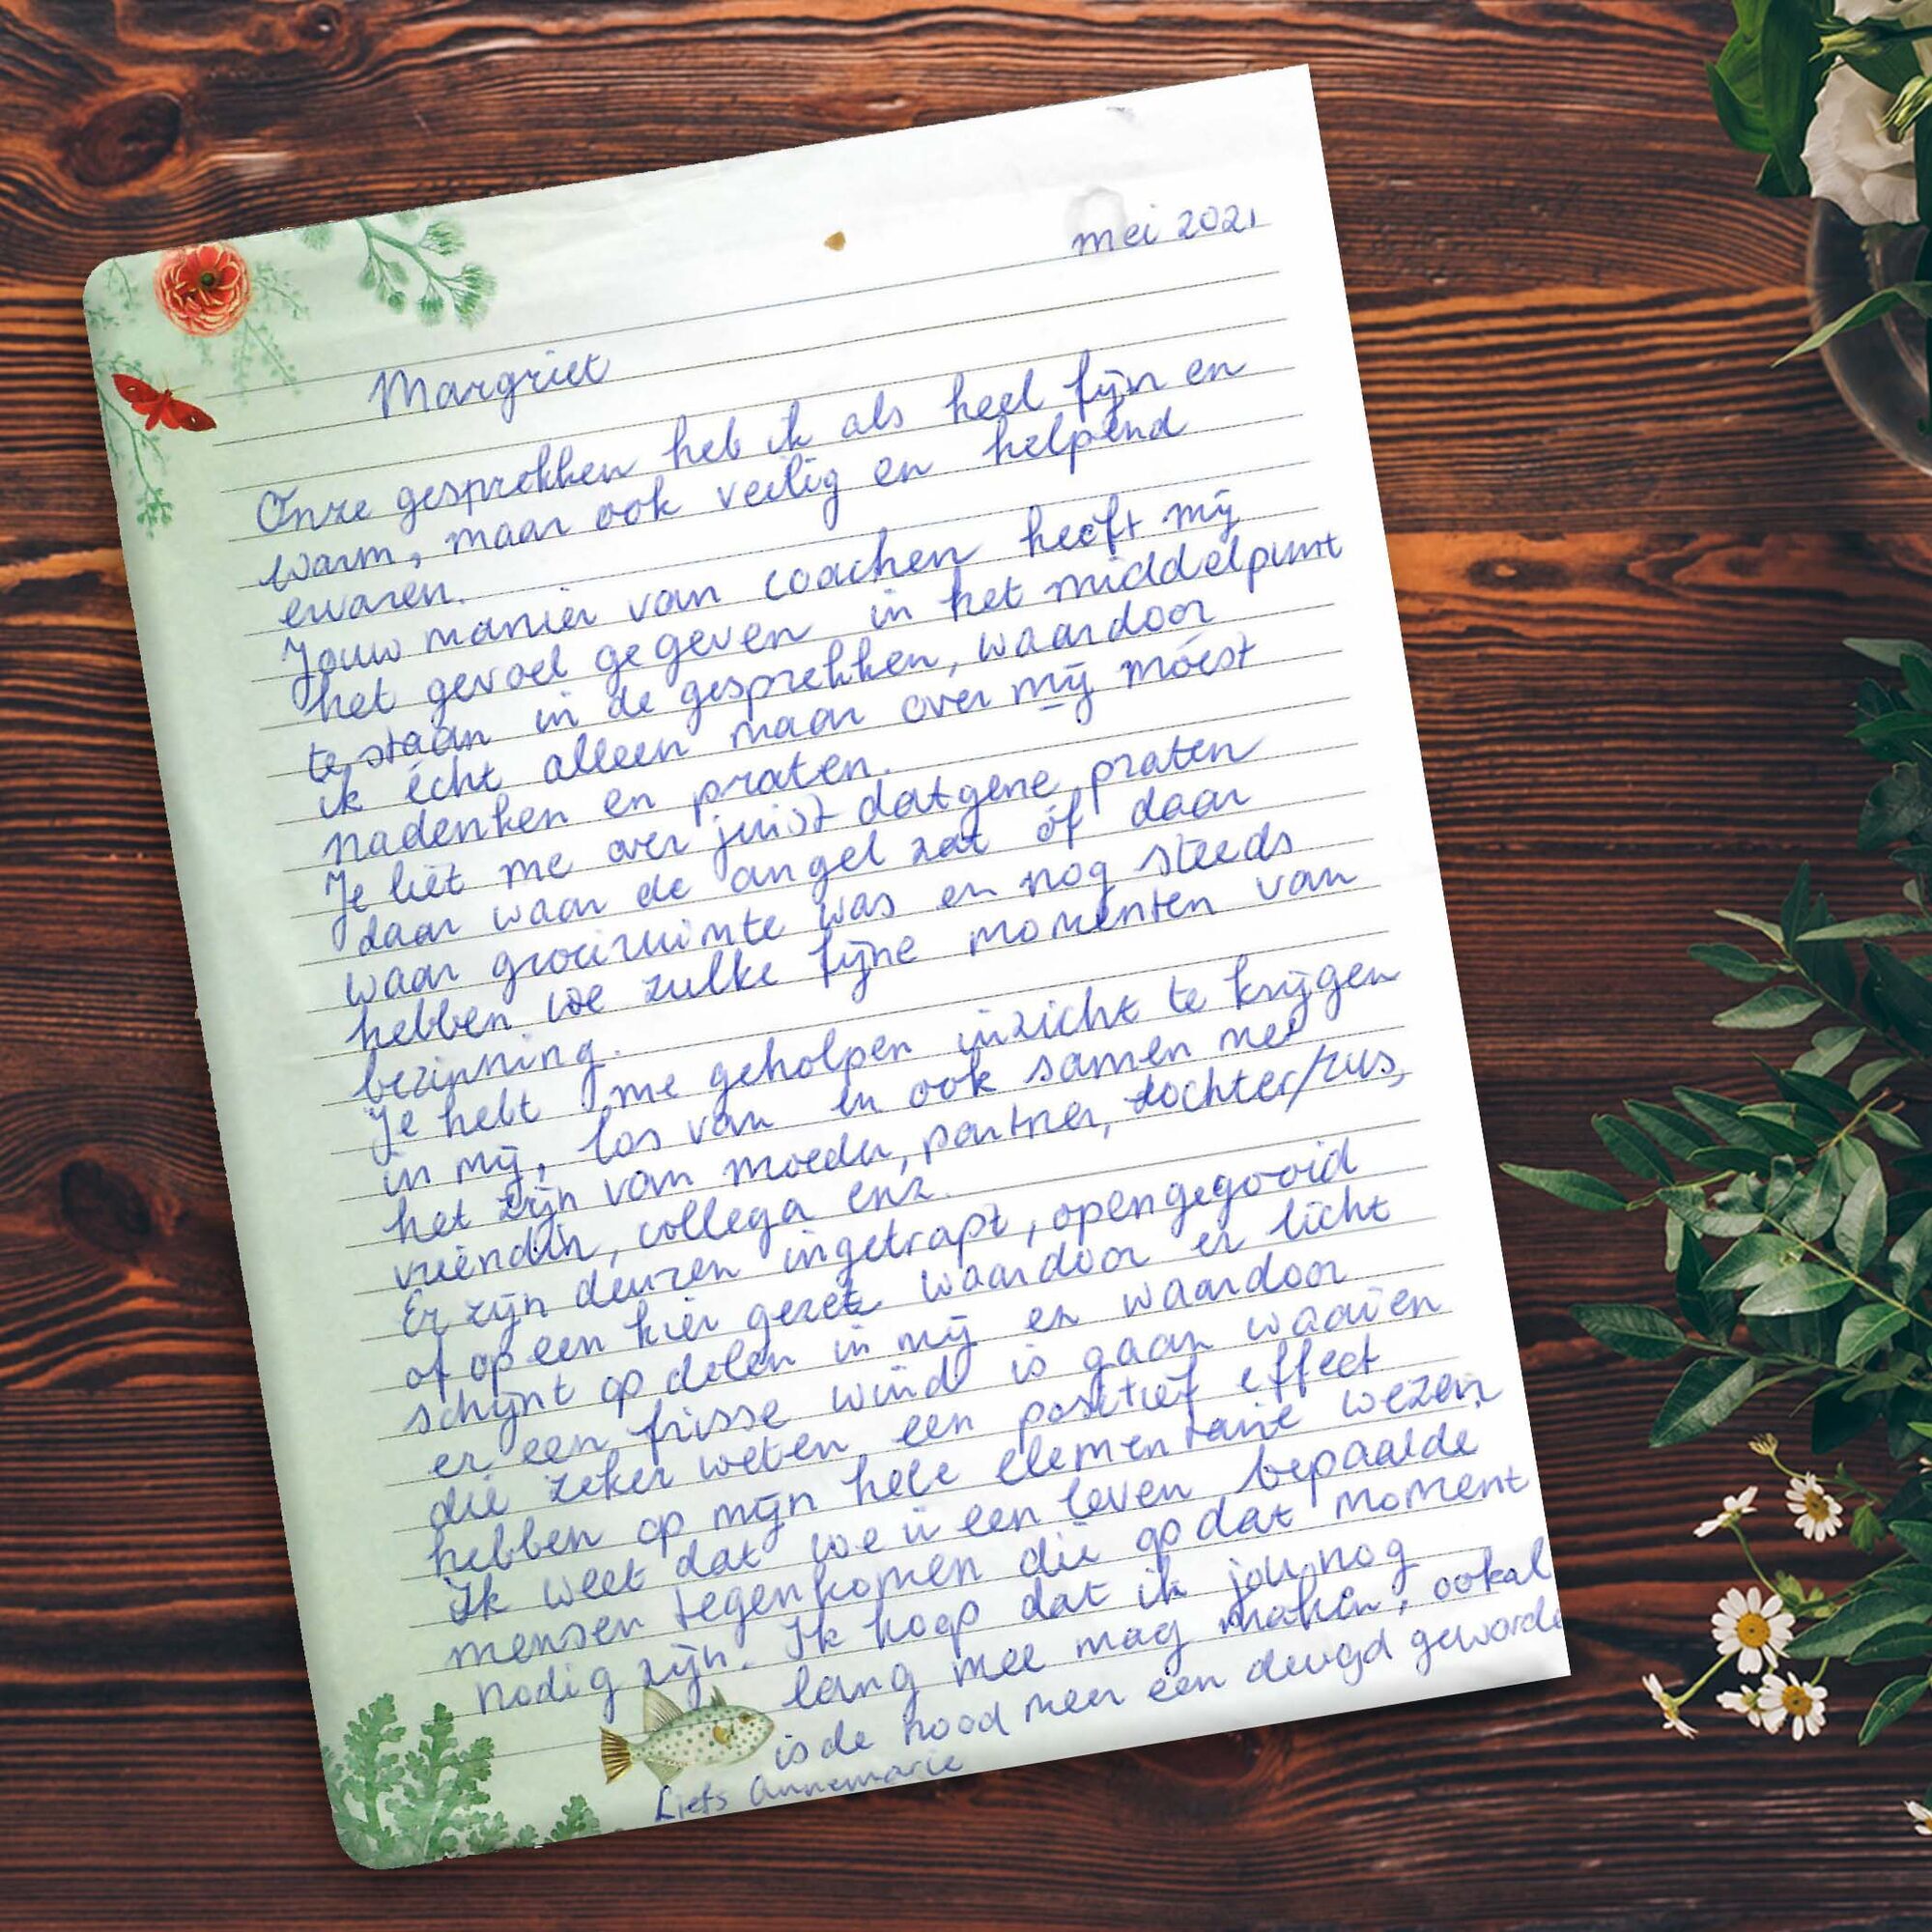 mei 2021
Margriet
Onze gesprekken heb ik als heel fijn en
warm, maar ook veilig en helpend
ervaren.
Jouw manier van coachen heeft mij
het gevoel gegeven in het middelpunt
te staan in de gesprekken, waardoor
ik écht alleen maar over mij móest
nadenken en praten.
Je liet me over juist datgene praten
daar waar de angel zat óf daar
waar groeiruimte was en nog steeds
hebben we zulke fijne momenten van
bezinning.
Je hebt me geholpen inzicht te krijgen
in mij, los van en ook samen met
het zijn van moeder, partner, dochter/zus,
vriendin, collega enz.
Er zijn deuren ingetrapt, opengegooid
of op een kier gezet waardoor er licht
schijnt op delen in mij en waardoor
er een frisse wind is gaan waaien
die zeker weten een positief effect
hebben op mijn hele elementaire wezen.
Ik weet dat we in een leven bepaalde
mensen tegenkomen die op dat moment
nodig zijn. Ik hoop dat ik jou nog
lang mee mag maken, ookal
is de nood meer een deugd geworde
Liefs Annemarie